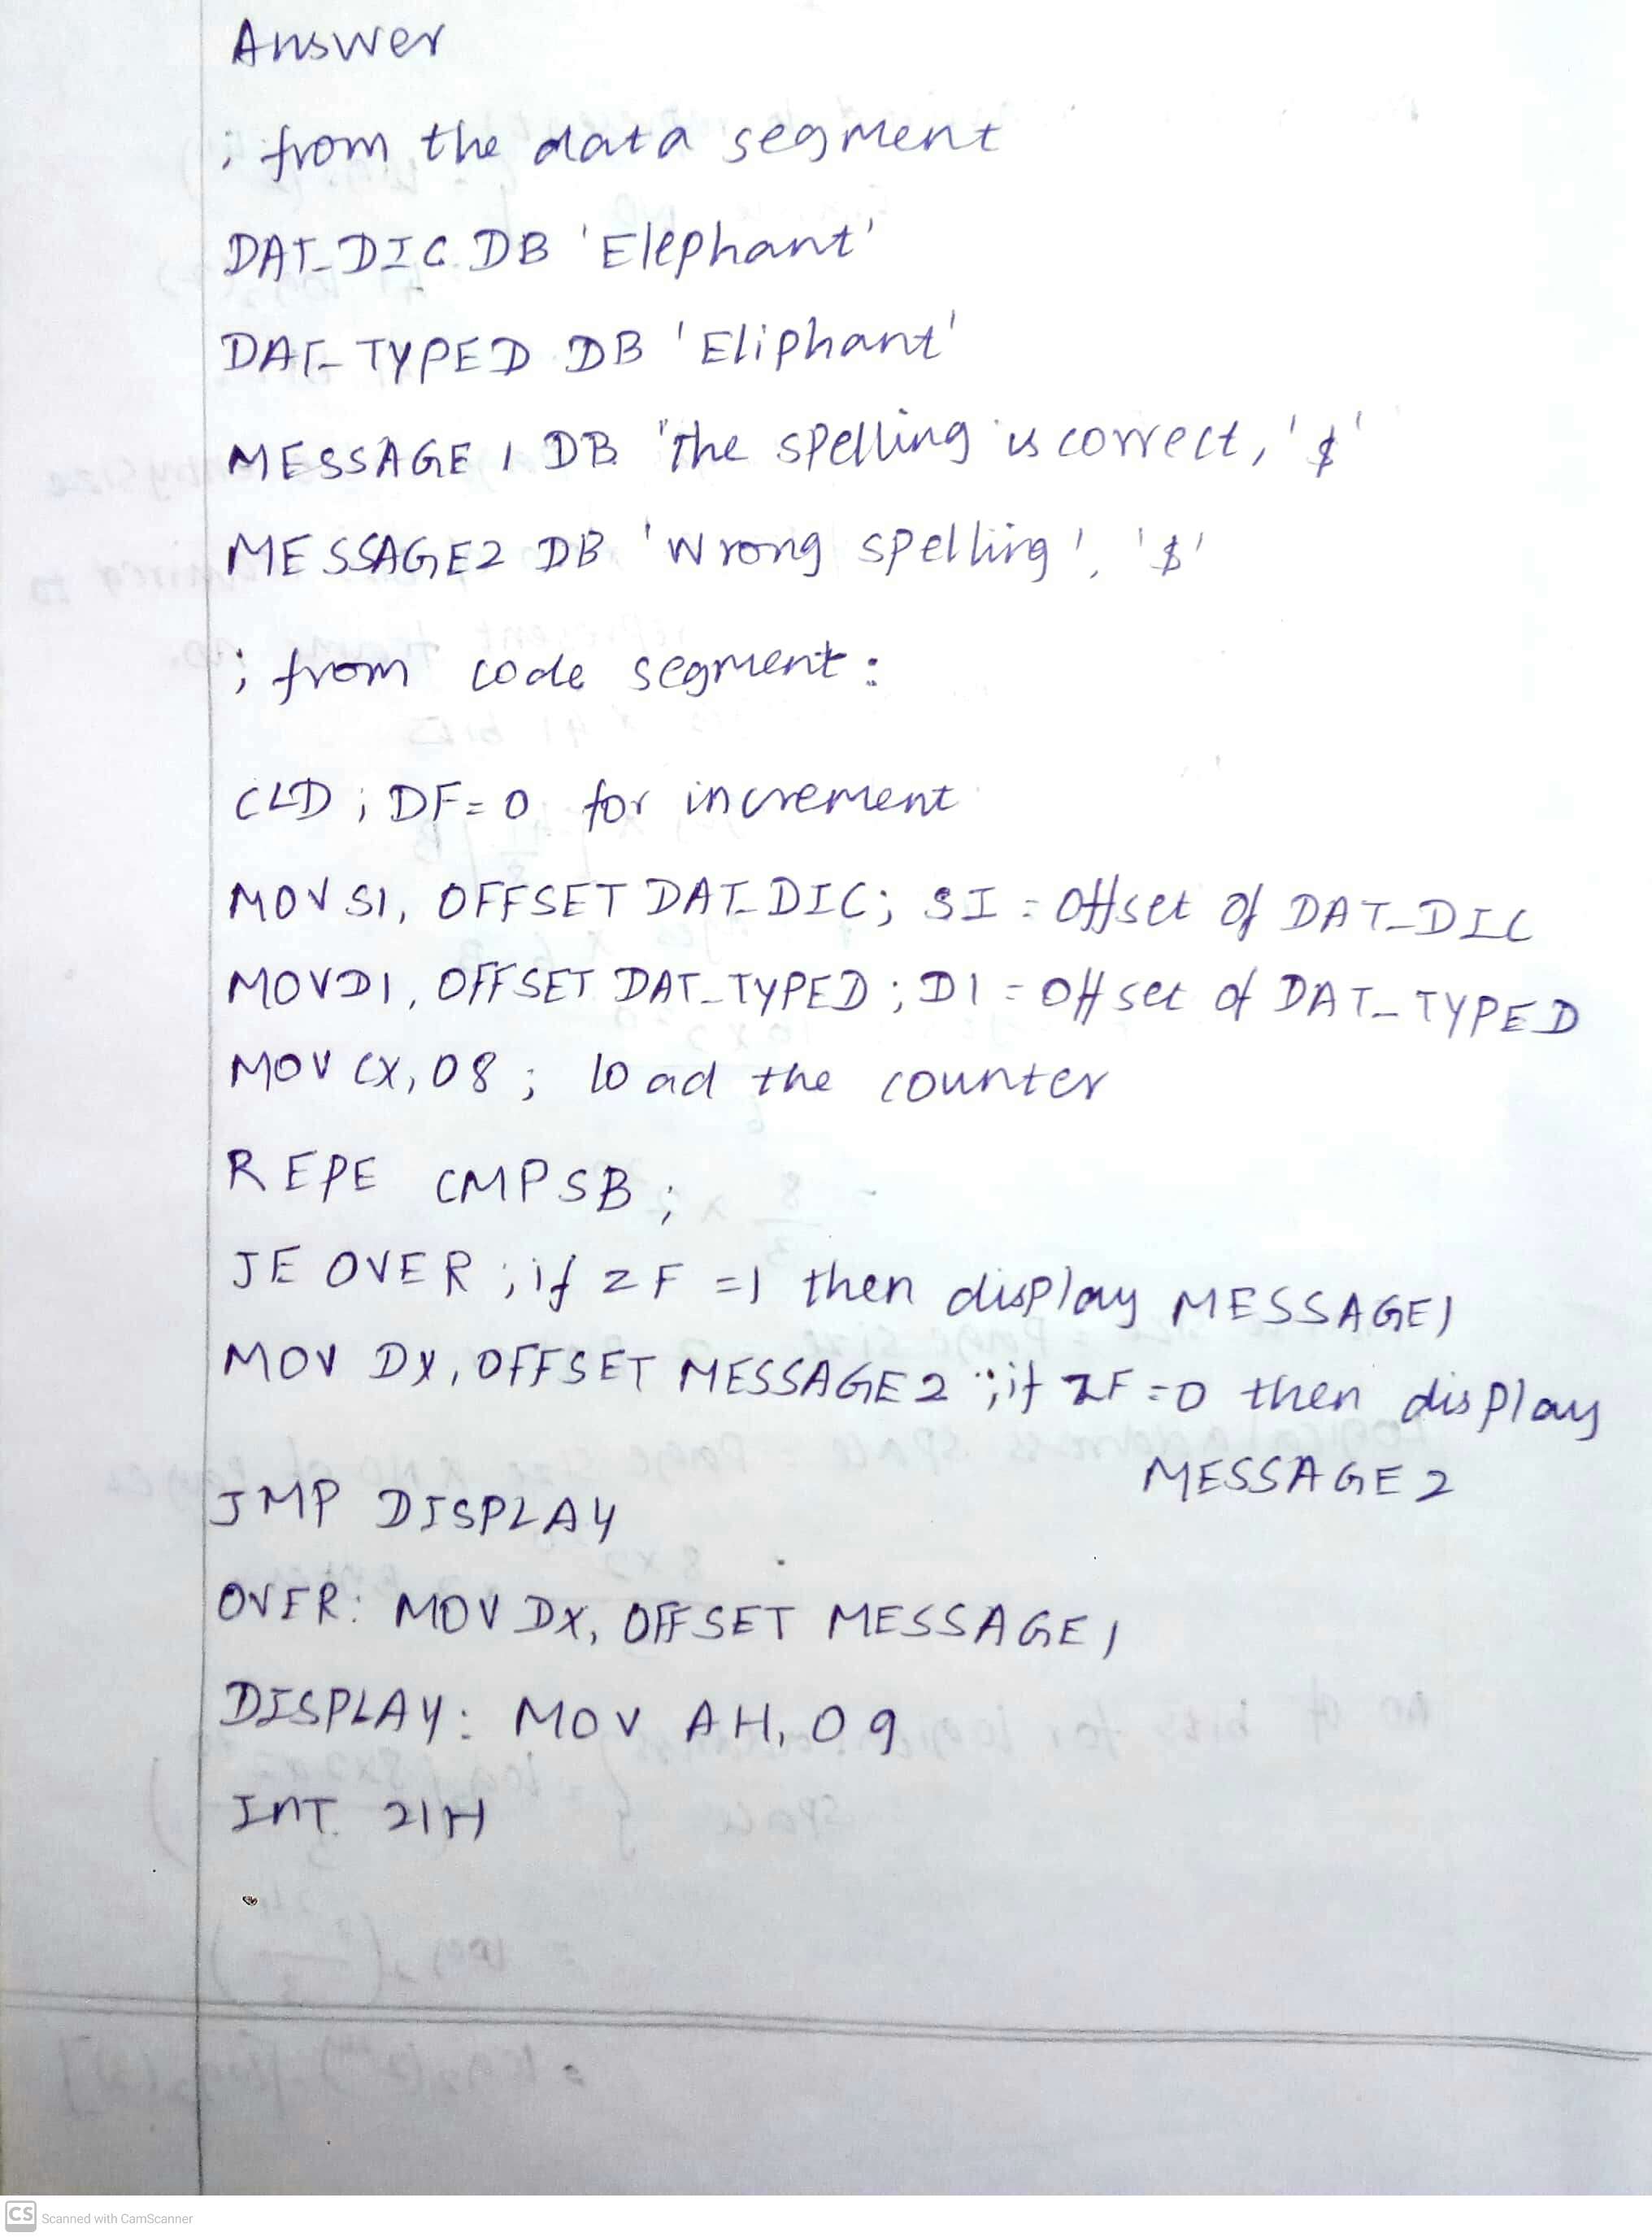 Answer
; from the data segment
DAT_DIC DB 'Elephant'
DAT_TYPED DB 'Eliphant'
MESSAGE 1 DB 'The spelling is correct,' $'
MESSAGE2 DB 'Wrong spelling', '$'
; from code segment:
CLD ; DF=0 for increment
MOV SI, OFFSET DAT_DIC; SI = Offset of DAT_DIC
MOV DI, OFFSET DAT_TYPED ; DI = Offset of DAT_TYPED
MOV CX, 08 ; load the counter
REPE CMPSB ;
JE OVER ; if ZF =1 then display MESSAGE1
MOV DX, OFFSET MESSAGE2 ; if ZF=0 then display
MESSAGE2
JMP DISPLAY
OVER: MOV DX, OFFSET MESSAGE1
DISPLAY: MOV AH, 09
INT 21H
CS Scanned with CamScanner